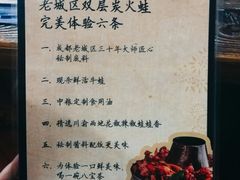 老城区双层炭火蛙
完美体验六条
一、成都老城区三十年大师匠心
秘制底料
二、现杀鲜活牛蛙
三、中粮定制食用油
四、精选川渝两地花椒辣椒蛙蛙香
五、秘制酱料配放更美味
六、为体验一口鲜美味,
喝一碗八宝茶